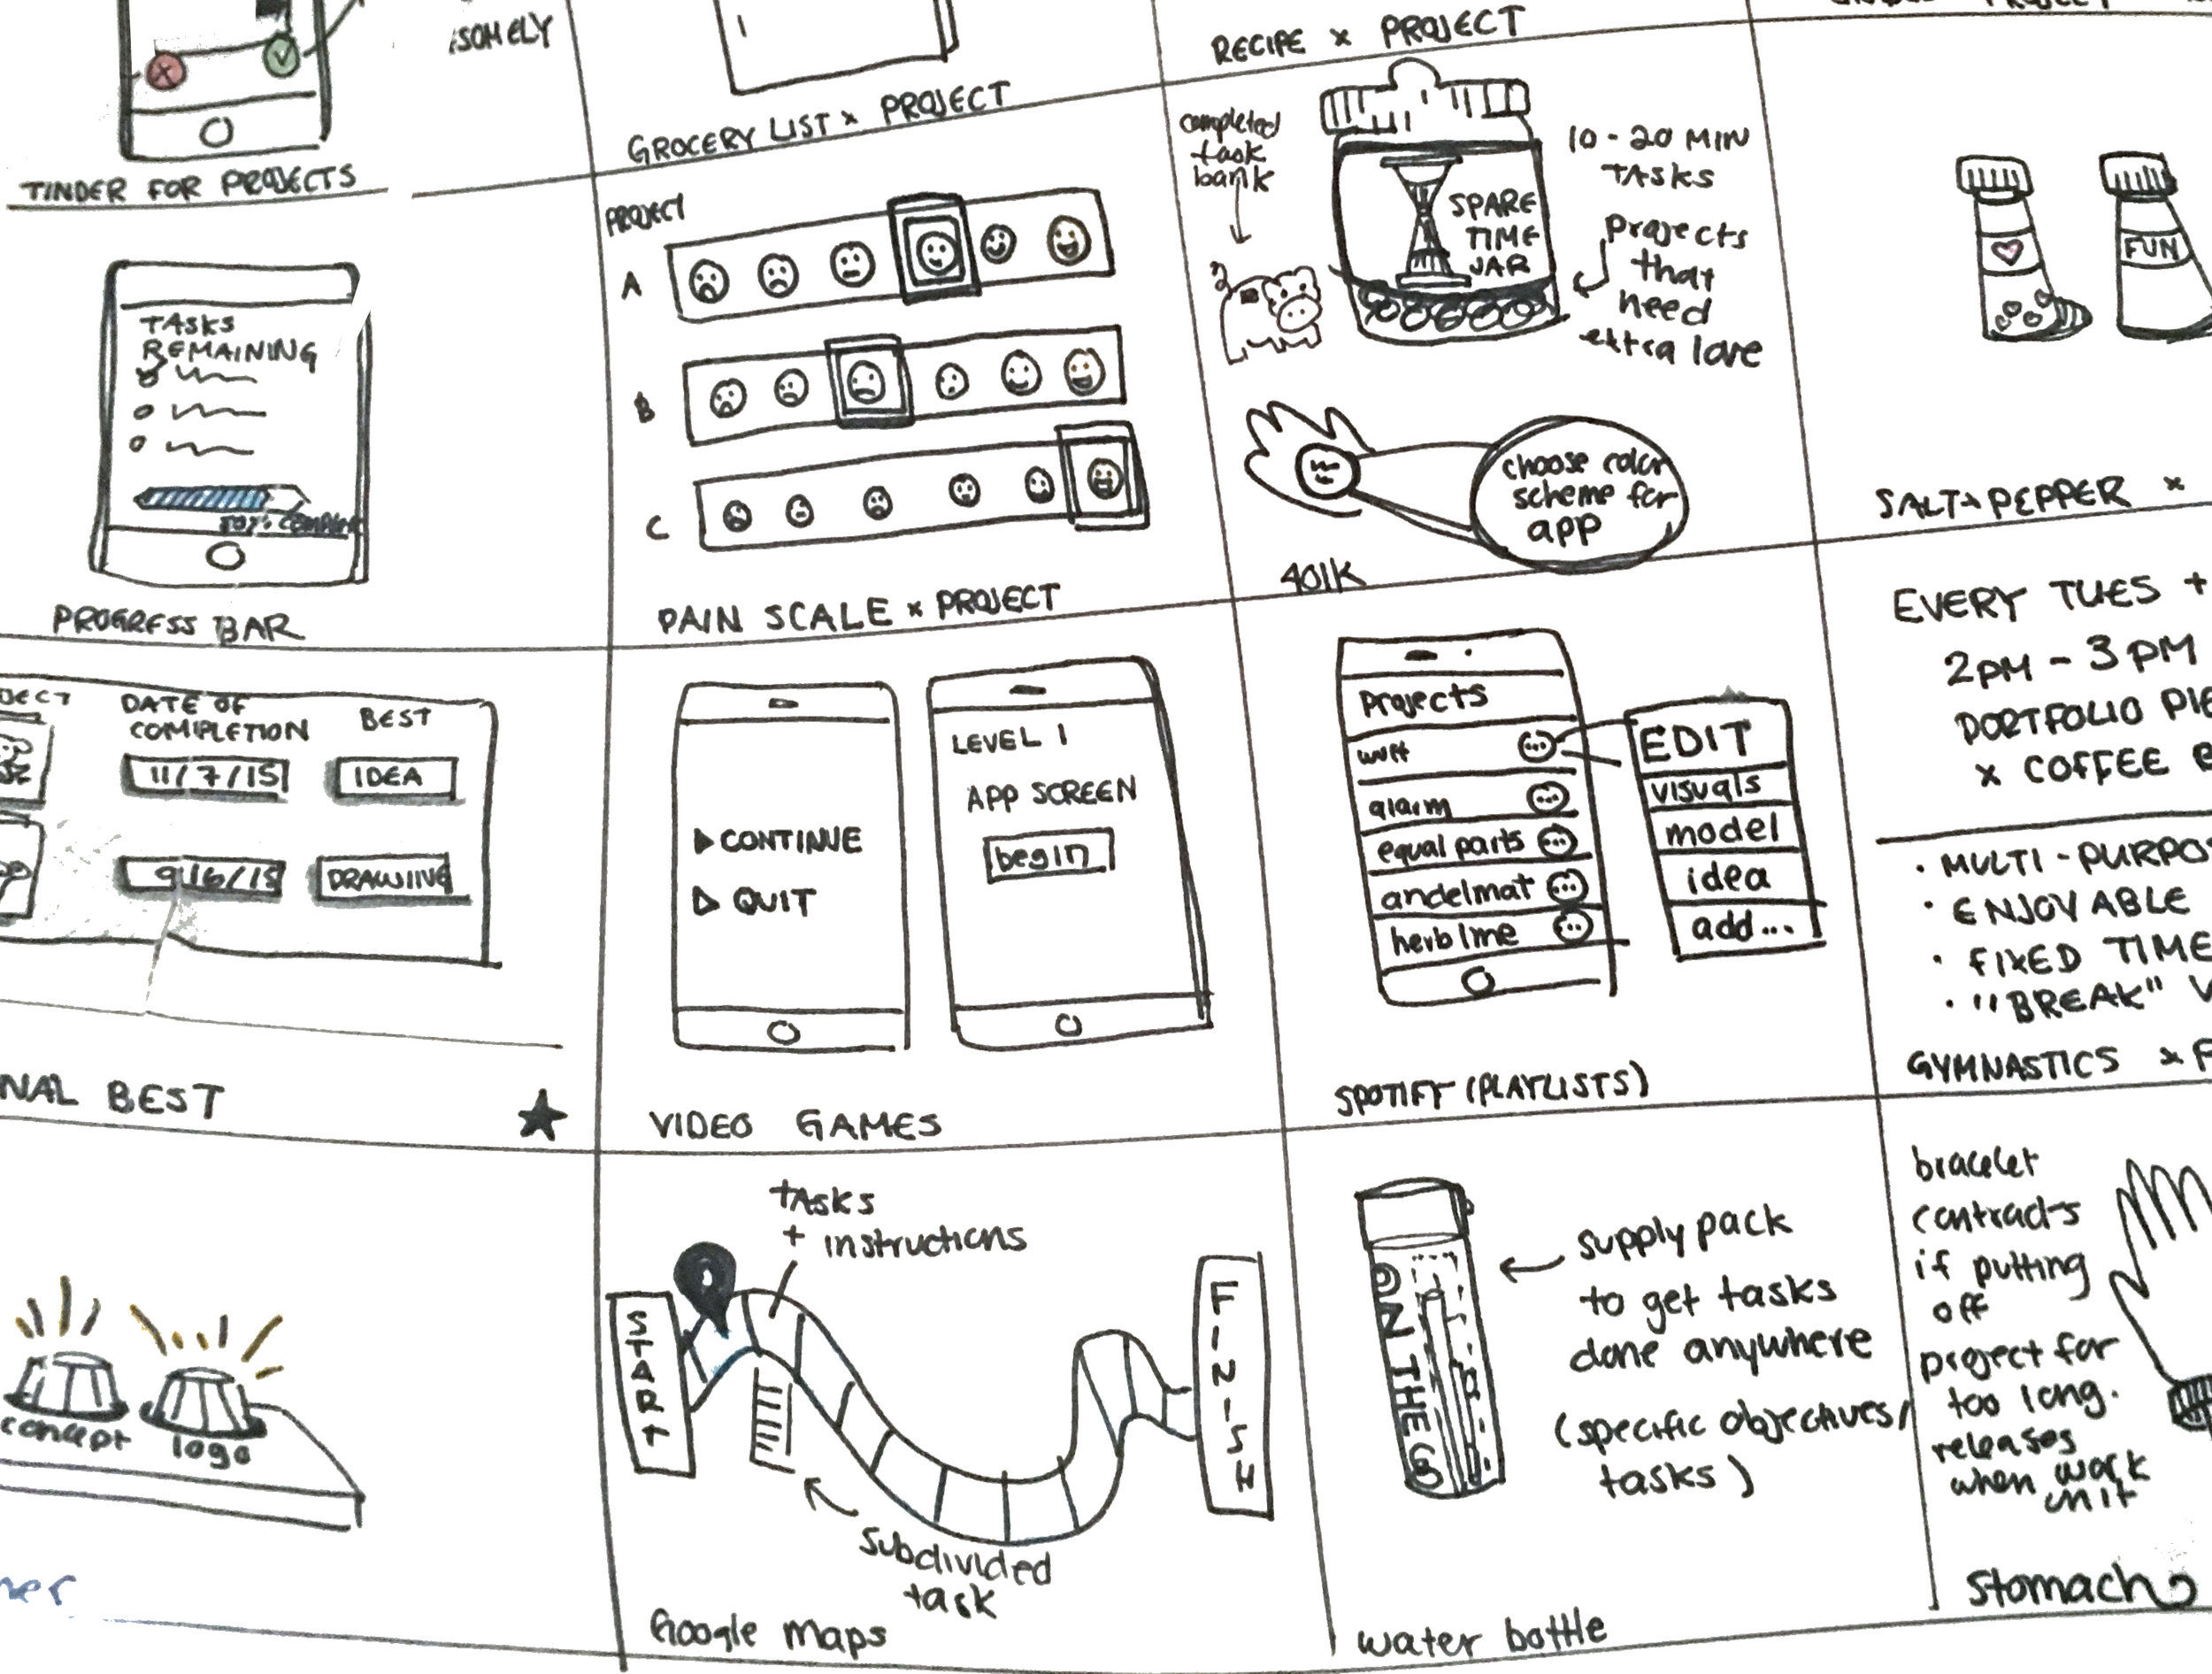 TINDER FOR PROJECTS
GROCERY LIST x PROJECT
RECIPE x PROJECT
TASKS
REMAINING
PROGRESS BAR
PROJECT
A
B
C
PAIN SCALE x PROJECT
completed
task
bank
SPARE
TIME
JAR
10-20 MIN
TASKS
projects
that
need
extra love
choose color
scheme for
app
401K
FUN
SALT + PEPPER x
DATE OF
COMPLETION
BEST
11/7/15
IDEA
9/16/15
DRAWING
NAL BEST
CONTINUE
QUIT
LEVEL 1
APP SCREEN
begin
VIDEO GAMES
Projects
alarm
equal parts
andelmat
herb lme
EDIT
visuals
model
idea
add...
SPOTIFY (PLAYLISTS)
EVERY TUES +
2PM - 3PM
PORTFOLIO PIE
x COFFEE B
• MULTI-PURPOS
• ENJOYABLE
• FIXED TIME
• "BREAK"
GYMNASTICS x
concept
logo
tasks
+ instructions
START
FINISH
subdivided
task
Google maps
ON THE GO
supply pack
to get tasks
done anywhere
(specific objectives/
tasks)
water bottle
bracelet
contracts
if putting
off
project for
too long.
releases
when work
unit
stomach